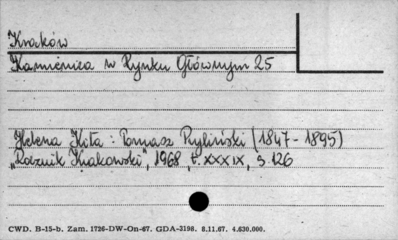 Kraków
Kamienica w Rynku Głównym 25
Helena Kiła : Tomasz Pryliński (1847 - 1895)
"Rocznik Krakowski", 1968, t. XXXIX, s. 126
CWD. B-15-b. Zam. 1726-DW-On-67. GDA-3198. 8.11.67. 4.630.000.